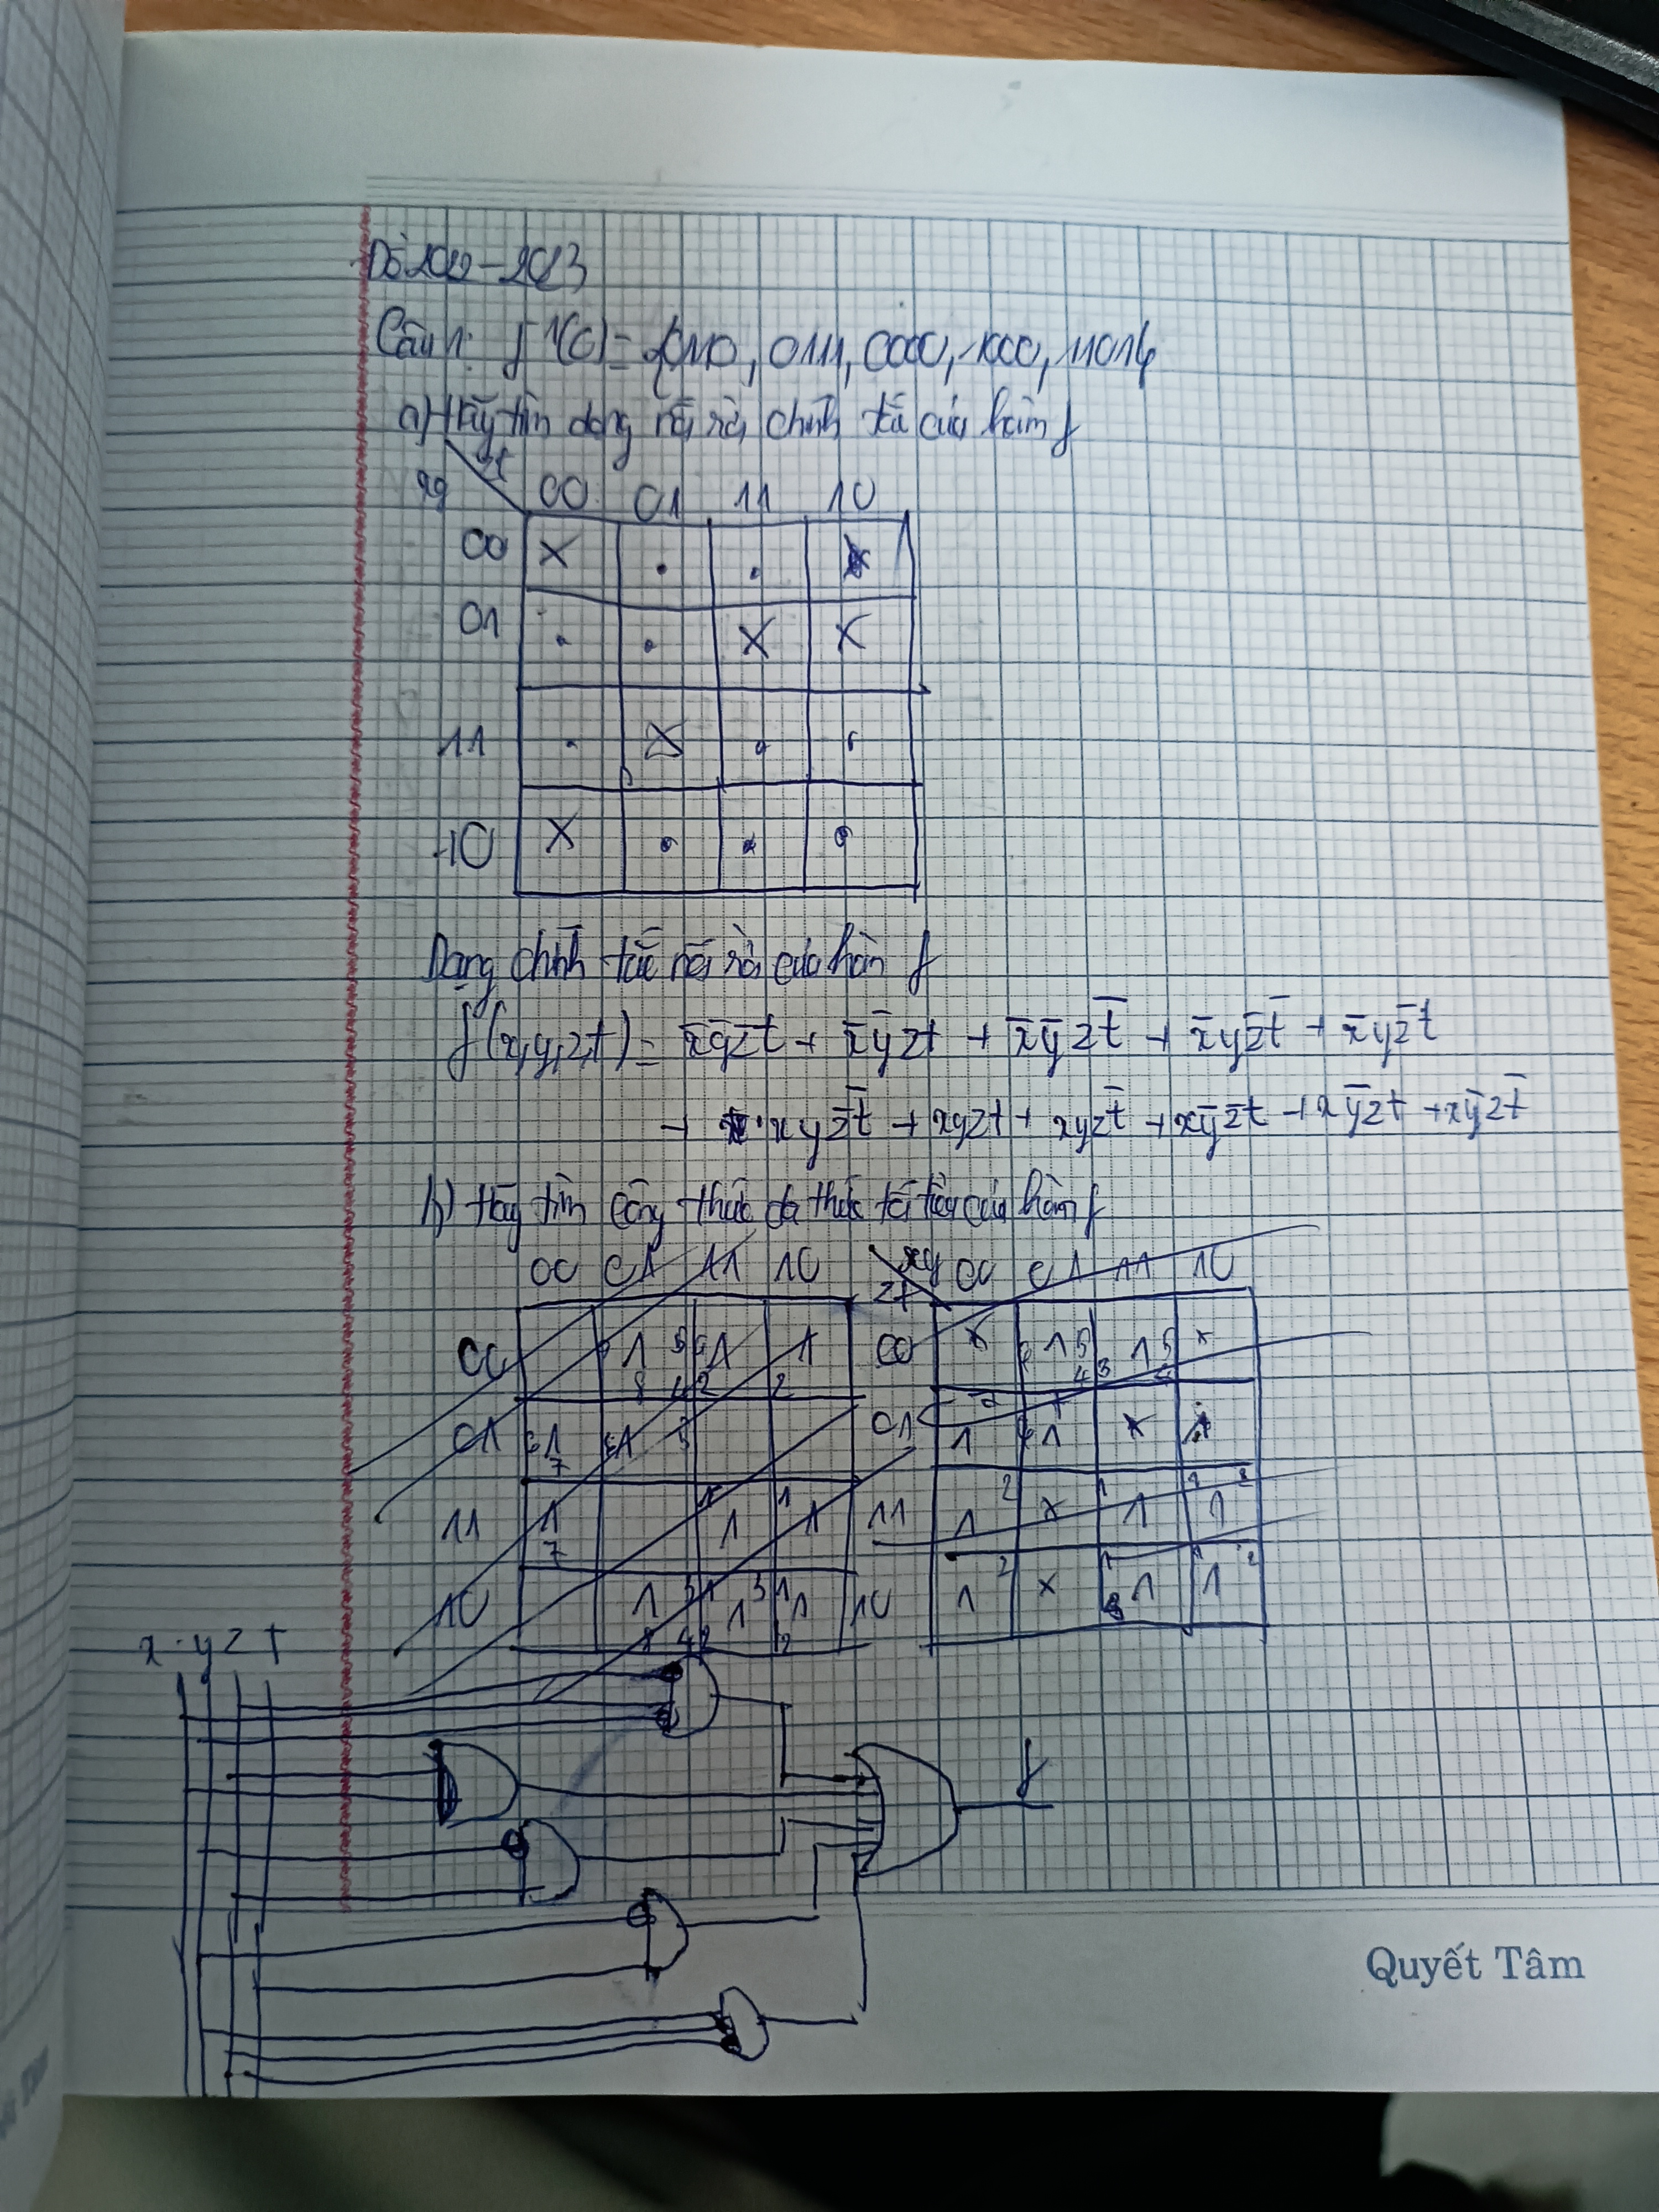 Đề 2022 - 2023
Câu 1: f⁻¹(0) = {0110, 0111, 0000, 1000, 1101}
a) Hãy tìm dạng nối rời chính tắc của hàm f
zt
xy 00 01 11 10
00 X . .
01 . . X X
11 . X . .
10 X . . .
Dạng chính tắc nối rời của hàm f
f(x,y,z,t) = x̄ȳz̄t + x̄ȳzt + x̄ȳzt̄ + x̄yz̄t̄ + x̄yz̄t
+ xyz̄t̄ + xyzt + xyzt̄ + xȳz̄t + xȳzt + xȳzt̄
b) Hãy tìm công thức đa thức tối tiểu của hàm f
00 01 11 10 xy 00 01 11 10
zt
00 1 1 1 00 x 1 1 x
01 1 1 01 1 1 x
11 1 1 1 11 1 x 1 1
10 1 1 1 10 1 x 1 1
x y z t
f
Quyết Tâm